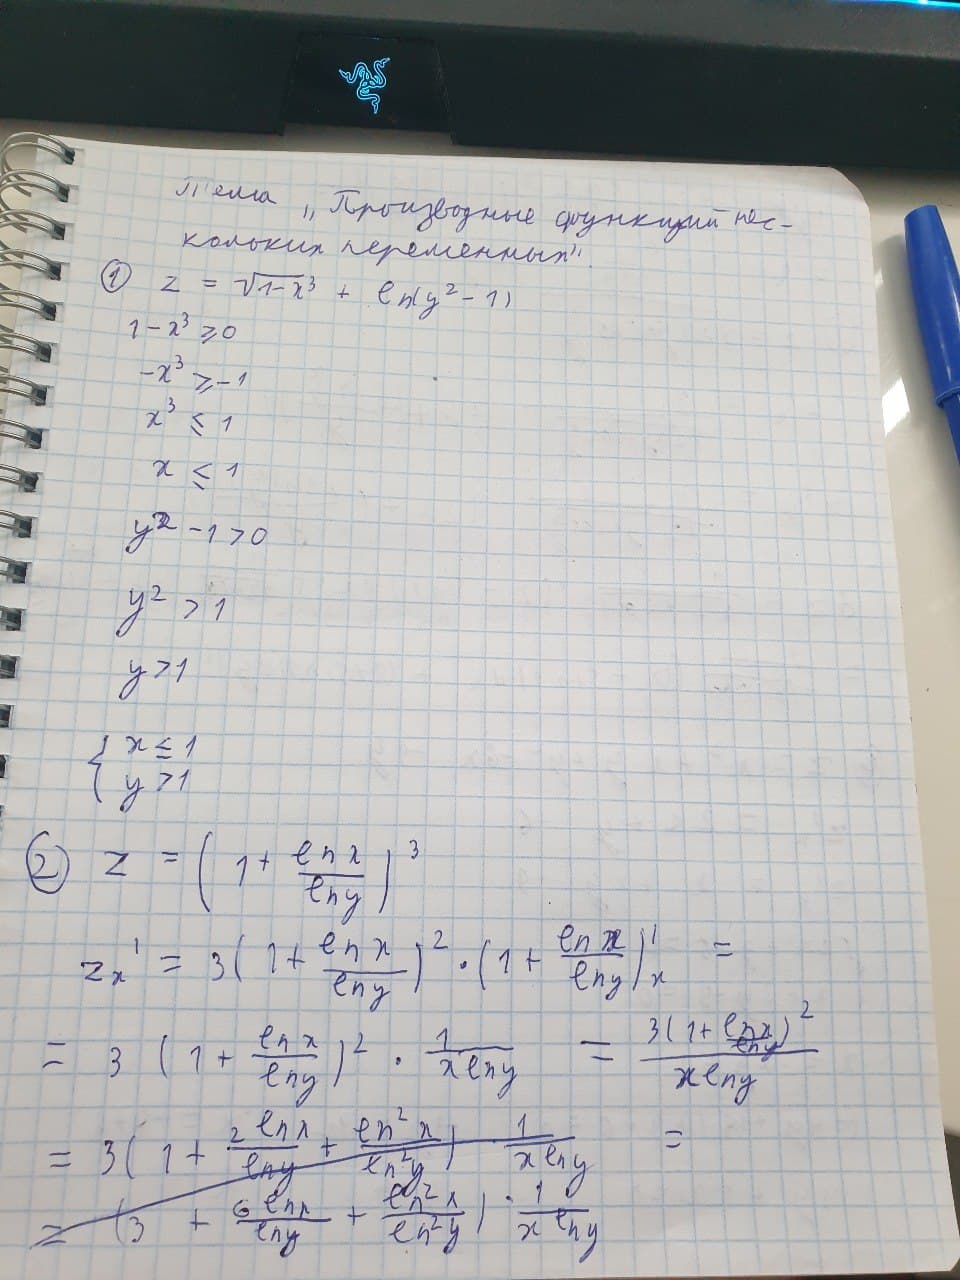 Тема „Производные функций нес-
кольких переменных".
① z = √1-x³ + ln(y² - 1)
1 - x³ ⩾ 0
-x³ ⩾ -1
x³ ≤ 1
x ≤ 1
y² - 1 > 0
y² > 1
y > 1
{ x ≤ 1
y > 1
② z = (1 + ln x / ln y)³
zx' = 3(1 + ln x / ln y)² · (1 + ln x / ln y)'x =
= 3 (1 + ln x / ln y)² · 1 / x ln y = 3(1 + ln x / ln y)² / x ln y
= 3(1 + 2 ln x / ln y + ln² x / ln² y) · 1 / x ln y =
= (3 + 6 ln x / ln y + ln² x / ln² y) · 1 / x ln y